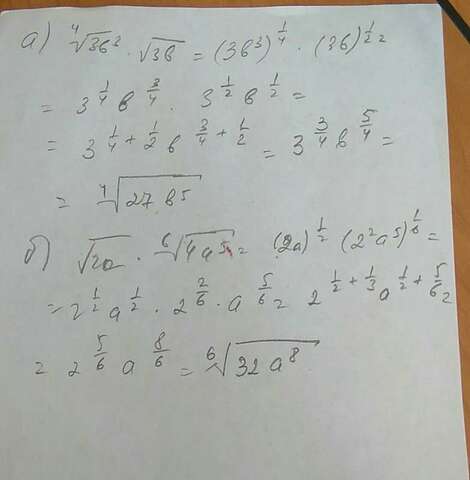 а) ⁴√3в³ · √3в = (3в³)^(1/4) · (3в)^(1/2) =
= 3^(1/4) в^(3/4) · 3^(1/2) в^(1/2) =
= 3^(1/4 + 1/2) в^(3/4 + 1/2) = 3^(3/4) в^(5/4) =
= ⁴√27 в⁵
б) √2a · ⁶√4a⁵ = (2a)^(1/2) (2²a⁵)^(1/6) =
= 2^(1/2) a^(1/2) · 2^(2/6) · a^(5/6) = 2^(1/2 + 1/3) a^(1/2 + 5/6) =
= 2^(5/6) a^(8/6) = ⁶√32 a⁸